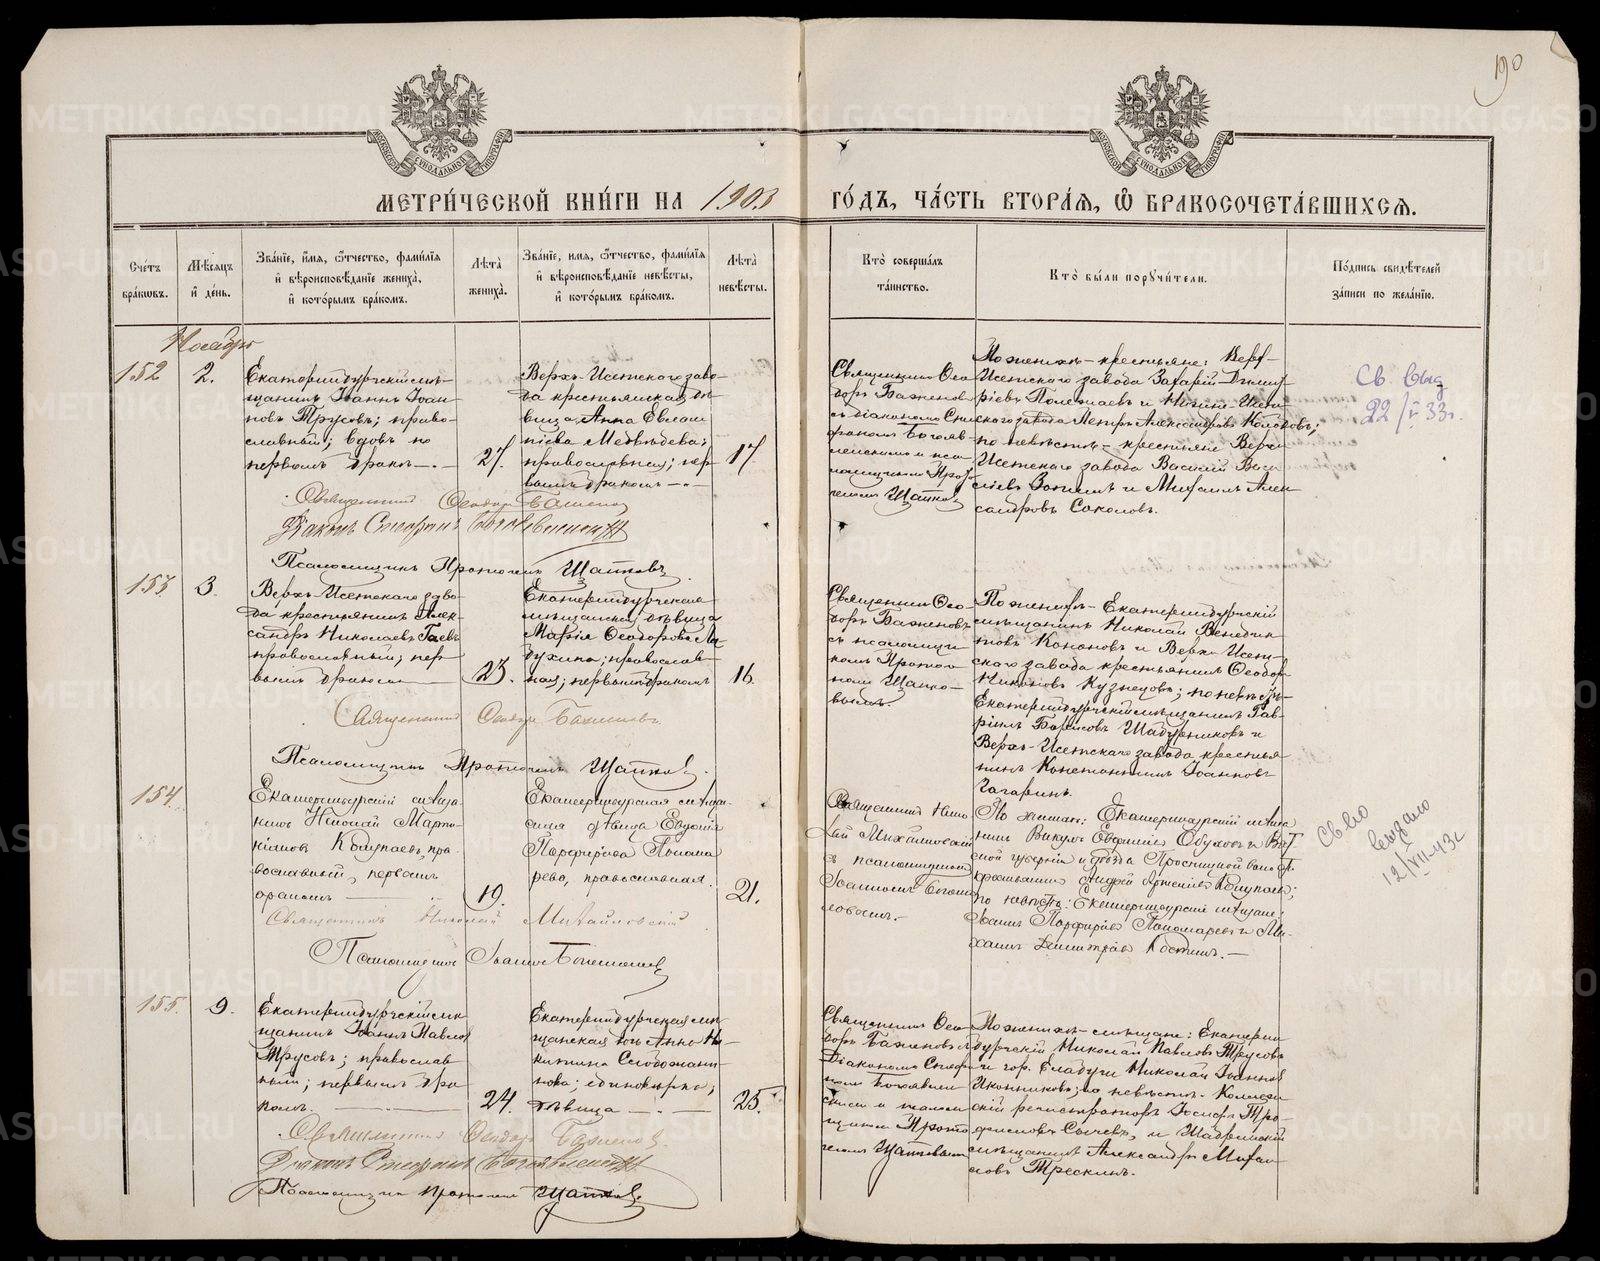 190
МЕТРИ́ЧЕСКОЙ КНИ́ГИ НА 1903 ГО́ДЪ, ЧА́СТЬ ВТОРА́Я, Ѡ БРАКОСОЧЕТА́ВШИХСЯ.
Сче́тъ бра́ковъ.
Мѣ́сяцъ и де́нь.
Зва́нїе, и́мя, ѻ́тчество, фами́лїя
и вѣроисповѣ́данїе жениха̀,
и кото́рымъ бра́комъ.
Лѣта̀ жениха̀.
Зва́нїе, имя, ѻ́тчество, фами́лїя
и вѣроисповѣ́данїе невѣ́сты,
и кото́рымъ бра́комъ.
Лѣта̀ невѣ́сты.
Кто̀ соверша́лъ
та́инство.
Кто̀ бы́ли порꙋчи́тели.
По́дпись свидѣ́телей
за́писи по жела́нїю.
Ноябрь
152
2.
Екатеринбургскій мѣ-
щанинъ Іоаннъ Іоан-
новъ Трусовъ; право-
славный; вдовъ по
первомъ бракѣ
27.
Верхъ-Исетскаго заво-
да крестьянская дѣ-
вица Анна Евлам-
піева Медвѣдева;
православная; пер-
вымъ бракомъ
17
Священникъ Ѳео-
доръ Баженовъ
съ діакономъ Сте-
фаномъ Богояв-
ленскимъ и пса-
ломщикомъ Прото-
геномъ Щапков
По женихѣ - крестьяне: Верх-
Исетскаго завода Захарій Димит-
ріевъ Полежаевъ и Нижне-Исет-
скаго завода Петръ Александровъ Колоколовъ;
по невѣстѣ - крестьяне Верх-
Исетскаго завода Василій Васи-
льевъ и Михаилъ Алек-
сандровъ Соколовъ.
Св. выд
22/V 33г.
Священникъ Ѳеодоръ Баженовъ
Діаконъ Стефанъ Богоявленскій
Псаломщикъ Протогенъ Щапковъ
153
3.
Верхъ-Исетскаго заво-
да крестьянинъ Алек-
сандръ Николаевъ Гаевъ
православный; пер-
вымъ бракомъ
23.
Екатеринбургская
мѣщанская дѣвица
Марія Ѳеодорова Ла-
духина; православ-
ная; первымъ бракомъ
16.
Священникъ Ѳео-
доръ Баженовъ
съ псаломщи-
комъ Протоге-
номъ Щапко-
вымъ.
По женихѣ - Екатеринбургскій
мѣщанинъ Николай Венедик-
товъ Кононовъ и Верхъ-Исет-
скаго завода крестьянинъ Ѳеодоръ
Никоновъ Кузнецовъ; по невѣстѣ-
Екатеринбургскій мѣщанинъ Гав-
ріилъ Борисовъ Шадриковъ и
Верхъ-Исетскаго завода крестья-
нинъ Константинъ Іоанновъ
Гагаринъ.
Священникъ Ѳеодоръ Баженовъ
Псаломщикъ Протогенъ Щапков.
154.
Екатеринбургскій мѣща-
нинъ Николай Марти-
ніановъ Колупаевъ, пра-
вославный, первымъ
бракомъ
19.
Екатеринбургская мѣщан-
ская дѣвица Евдокія
Порфирьева Понома-
рева, православная.
21.
Священникъ Нико-
лай Михайловскій
съ псаломщикомъ
Іоанномъ
ловымъ.
По женихѣ: Екатеринбургскій мѣща-
нинъ Викулъ Евфиміевъ Обуховъ и Вят-
ской губерніи и уѣзда волости
крестьянинъ Андрей Колупаевъ;
по невѣстѣ: Екатеринбургскіе мѣщане:
Іоаннъ Порфирьевъ Пономаревъ и Ми-
хаилъ Димитріевъ Костинъ.
Св-во
выдано
12/VII-43г
Священникъ Николай Михайловскій
Псаломщикъ Іоаннъ
155.
9.
Екатеринбургскій мѣ-
щанинъ Іоаннъ Павлов
Трусовъ; православ-
ный; первымъ бра-
комъ.
24.
Екатеринбургская мѣ-
щанская дочь Анна Ни-
китина Слободчи-
кова; единовѣрка;
дѣвица
25.
Священникъ Ѳео-
доръ Баженовъ съ
діакономъ Стефа-
номъ Богоявлен-
скимъ и псалом-
щикомъ Прото-
геномъ Щапковымъ
По женихѣ - мѣщане: Екатерин-
бургскій Николай Павловъ Трусовъ
и гор. Елабуги Николай Іоаннов
Иконниковъ; по невѣстѣ - Коллеж-
скій регистраторъ Іосифъ Тро-
фимовъ Сычевъ, и Шадринскій
мѣщанинъ Александръ Михаи-
ловъ Трескинъ.
Священникъ Ѳеодоръ Баженовъ.
Діаконъ Стефанъ Богоявленскій
Псаломщикъ Протогенъ Щапков.
METRIKI.GASO-URAL.RU